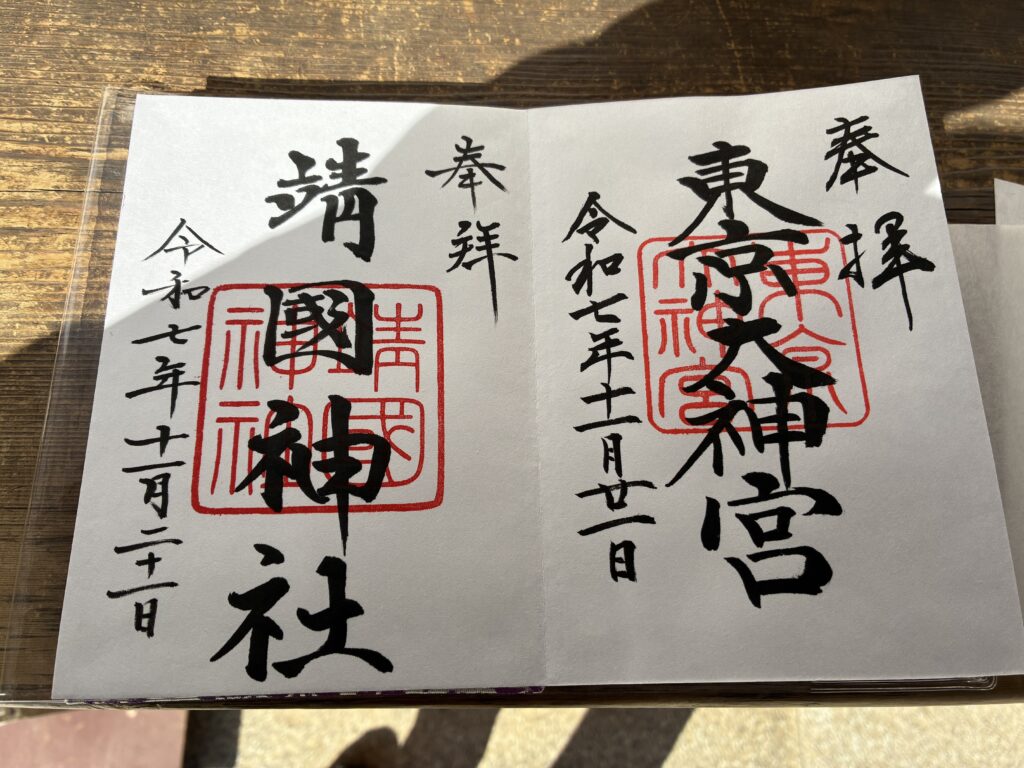 奉拝
東京大神宮
令和七年十一月廿一日
東京
大神宮
奉拝
靖國神社
令和七年十一月二十一日